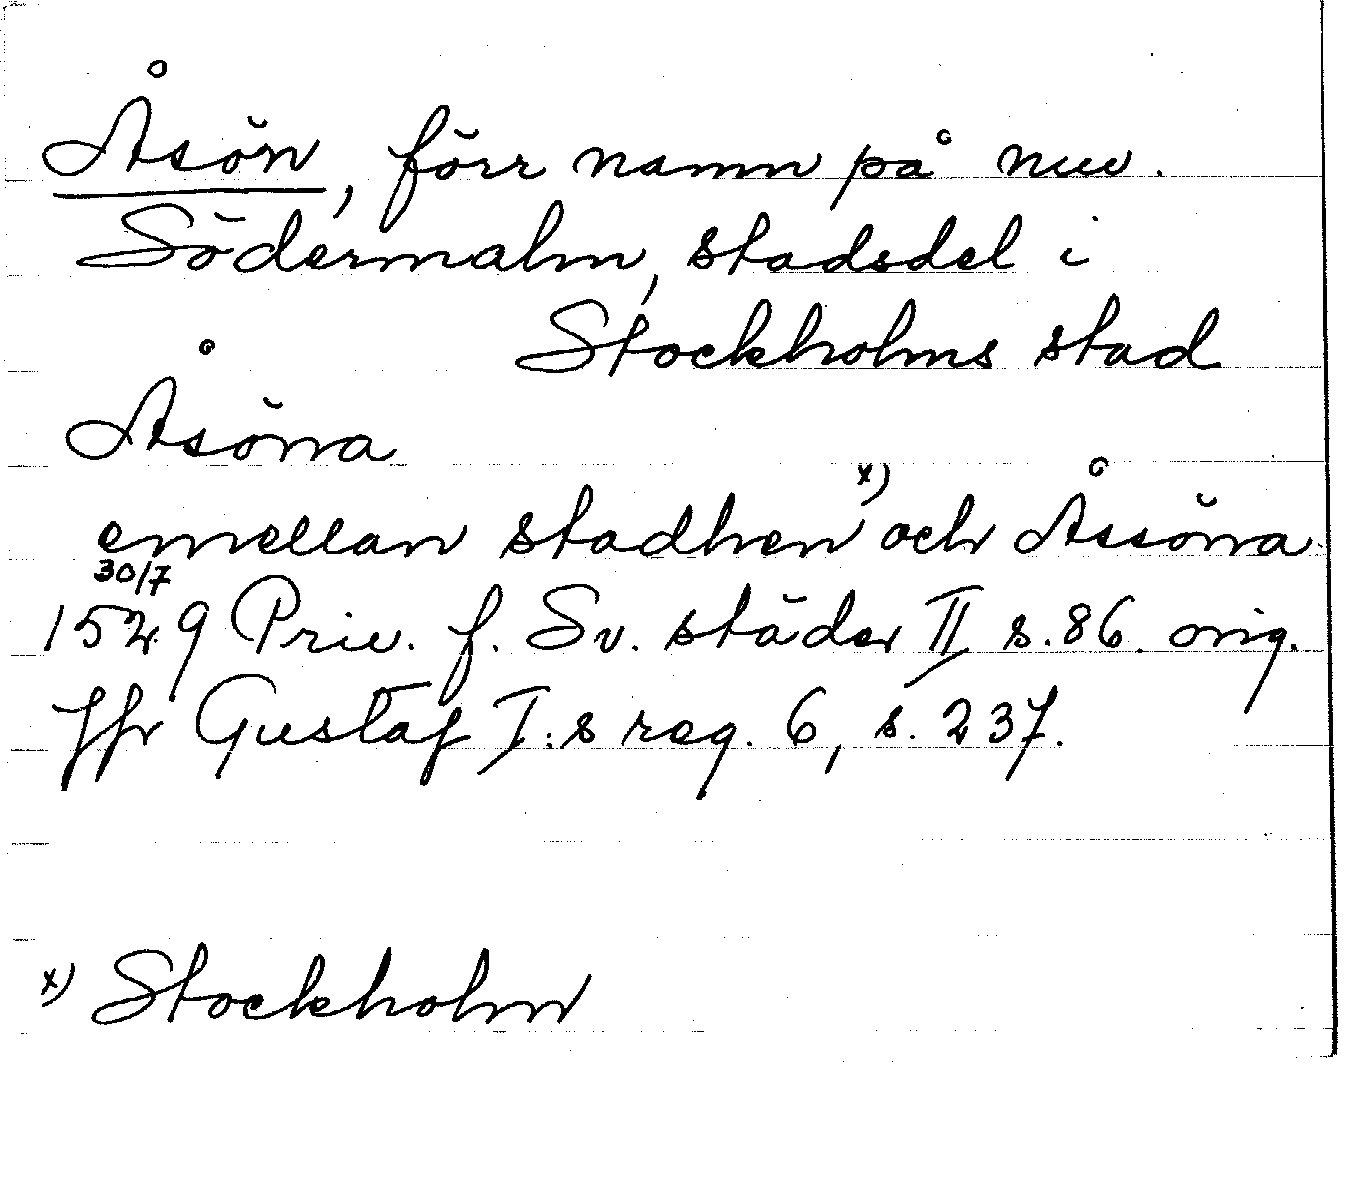 Åsön, förr namn på nuv.
Södermalm, stadsdel i
Stockholms stad
Åsöna
emellan stadhen x) och Åssöna
30/7
1529 Priv. f. Sv. städer II s. 86. orig.
Jfr Gustaf I:s reg. 6, s. 237.
x) Stockholm